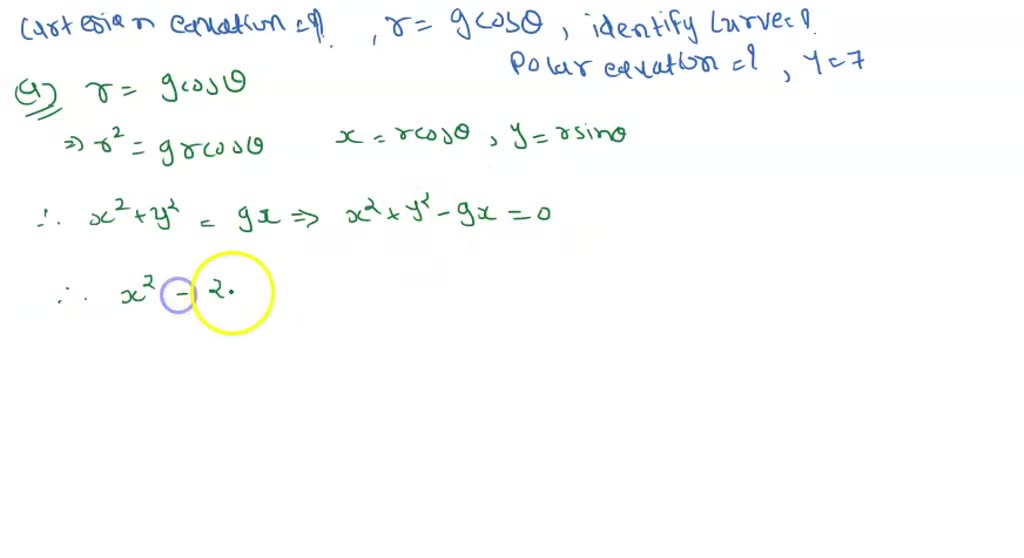 Cartesian equation =?, r = 9cosθ, identify curve=?
Polar equation =?, y=7
(a) r = 9cosθ
⇒ r² = 9rcosθ x = rcosθ, y = rsinθ
∴ x²+y² = 9x ⇒ x²+y²-9x = 0
∴ x² - 2.